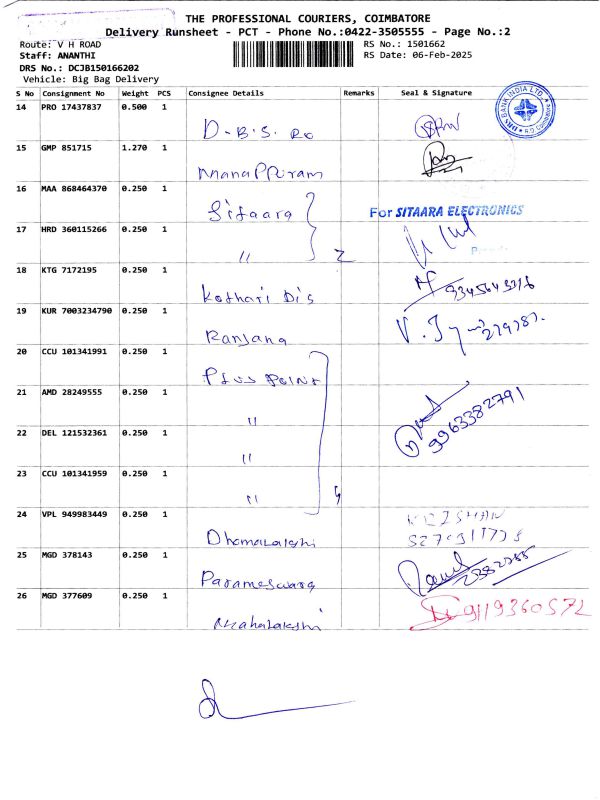 THE PROFESSIONAL COURIERS, COIMBATORE
Delivery Runsheet - PCT - Phone No.:0422-3505555 - Page No.:2
Route: V H ROAD RS No.: 1501662
Staff: ANANTHI RS Date: 06-Feb-2025
DRS No.: DCJB150166202
Vehicle: Big Bag Delivery
S No Consignment No Weight PCS Consignee Details Remarks Seal & Signature
14 PRO 17437837 0.500 1
D.B.S. Ro
DBS BANK INDIA LTD.
15 GMP 851715 1.270 1
Manappuram
16 MAA 868464370 0.250 1
Sitaara
For SITAARA ELECTRONICS
17 HRD 360115266 0.250 1
" 2
18 KTG 7172195 0.250 1
Kothari Dis 9345643316
19 KUR 7003234790 0.250 1
Ranjana
20 CCU 101341991 0.250 1
Plus Point
21 AMD 28249555 0.250 1
" 9963382791
22 DEL 121532361 0.250 1
"
23 CCU 101341959 0.250 1
" 4
24 VPL 949983449 0.250 1
Dhanalakshi
25 MGD 378143 0.250 1
Parameswara
26 MGD 377609 0.250 1
Mahalakshi 9119360572